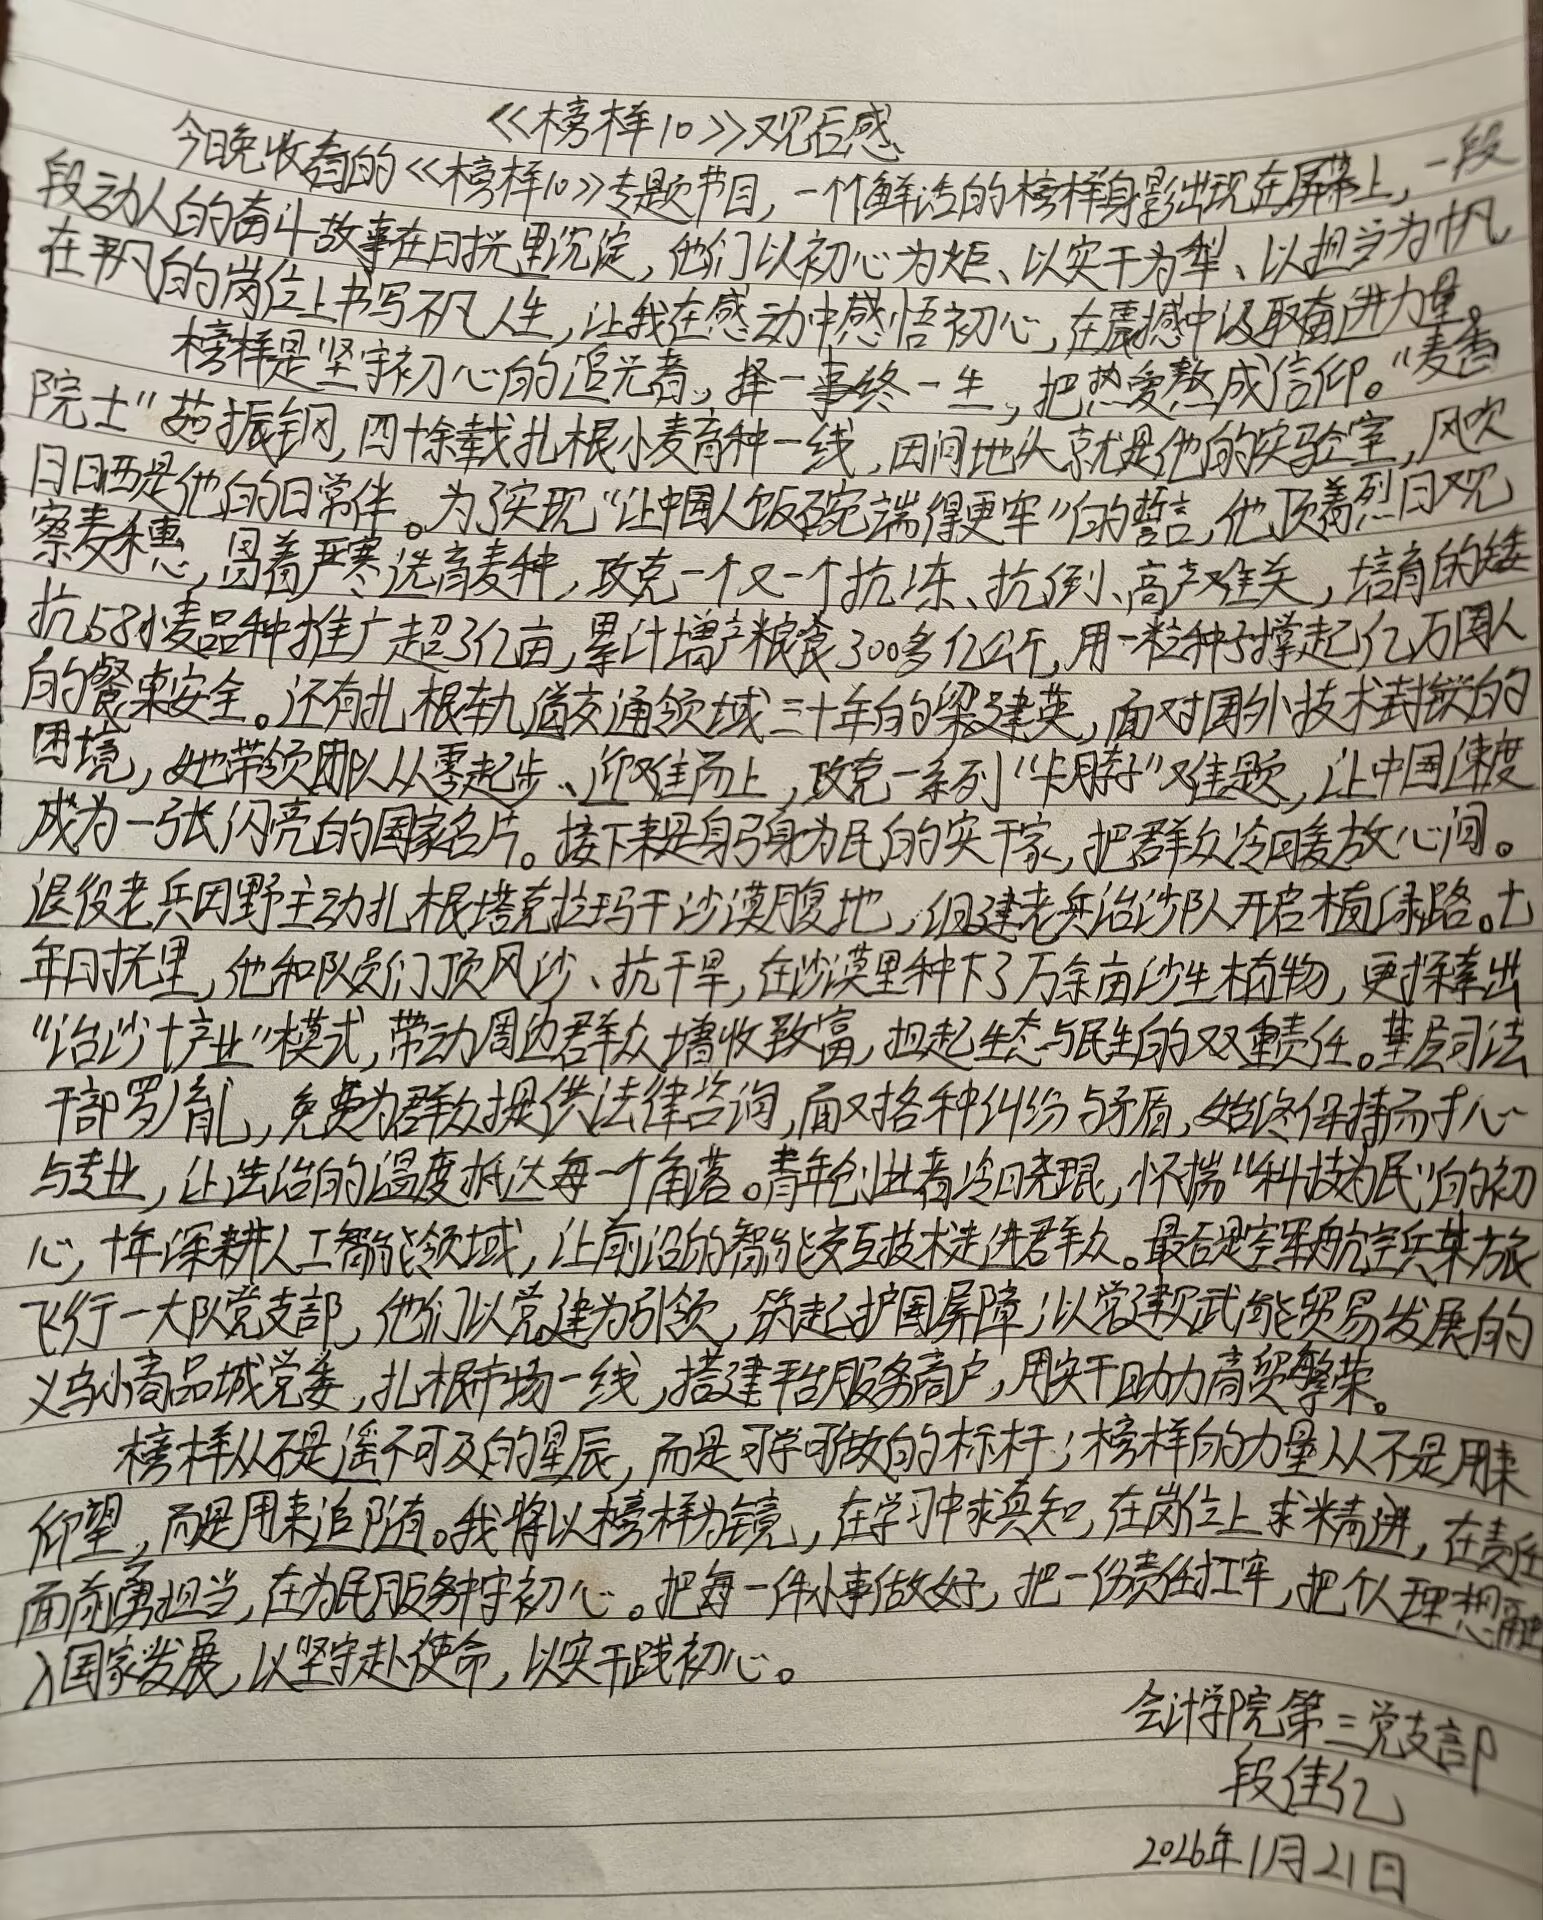 《榜样10》观后感
今晚收看的《榜样10》专题节目，一个个鲜活的榜样身影出现在屏幕上，一段
段动人的奋斗故事在日拢里沉淀，他们以初心为炬、以实干为犁、以担当为帆，
在平凡的岗位上书写不凡人生，让我在感动中感悟初心，在震撼中汲取奋进力量。
榜样是坚守初心的追光者，择一事终一生，把热爱熬成信仰。“麦香
院士”茹振钢，四十余载扎根小麦育种一线，田间地头就是他的实验室，风吹
日晒是他的日常伴。为了实现“让中国人饭碗端得更牢”的誓言，他顶着烈日观
察麦穗，冒着严寒选育麦种，攻克一个又一个抗冻、抗倒、高产难关，培育的矮
抗58小麦品种推广超3亿亩，累计增产粮食300多亿公斤，用一粒种子撑起亿万国人
的餐桌安全。还有扎根轨道交通领域三十年的梁建英，面对国外技术封锁的
困境，她带领团队从零起步、迎难而上，攻克一系列“卡脖子”难题，让中国速度
成为一张闪亮的国家名片。接下来是躬身为民的实干家，把群众冷暖放心间。
退役老兵田野主动扎根塔克拉玛干沙漠腹地，组建老兵治沙队开启植绿路。七
年日拢里，他和队员们顶风沙、抗干旱，在沙漠里种下了万余亩沙生植物，更探索出
“治沙+产业”模式，带动周边群众增收致富，担起生态与民生的双重责任。基层司法
干部罗胤，免费为群众提供法律咨询，面对各种纠纷与矛盾，始终保持耐心
与专业，让法治的温度抵达每一个角落。青年创业者冷晓琨，怀揣“科技为民”的初
心，十年深耕人工智能领域，让前沿的智能交互技术走进群众。最后是空军航空兵某旅
飞行一大队党支部，他们以党建为引领，筑起护国屏障；以党建赋能贸易发展的
义乌小商品城党委，扎根市场一线，搭建平台服务商户，用实干助力商贸繁荣。
榜样从不是遥不可及的星辰，而是可学可做的标杆；榜样的力量从不是用来
仰望，而是用来追随。我将以榜样为镜，在学习中求真知，在岗位上求精进，在责任
面前勇担当，在为民服务中守初心。把每一件小事做好，把一份责任扛牢，把个人理想融
入国家发展，以坚守赴使命，以实干践初心。
会计学院第三党支部
段佳亿
2026年1月21日